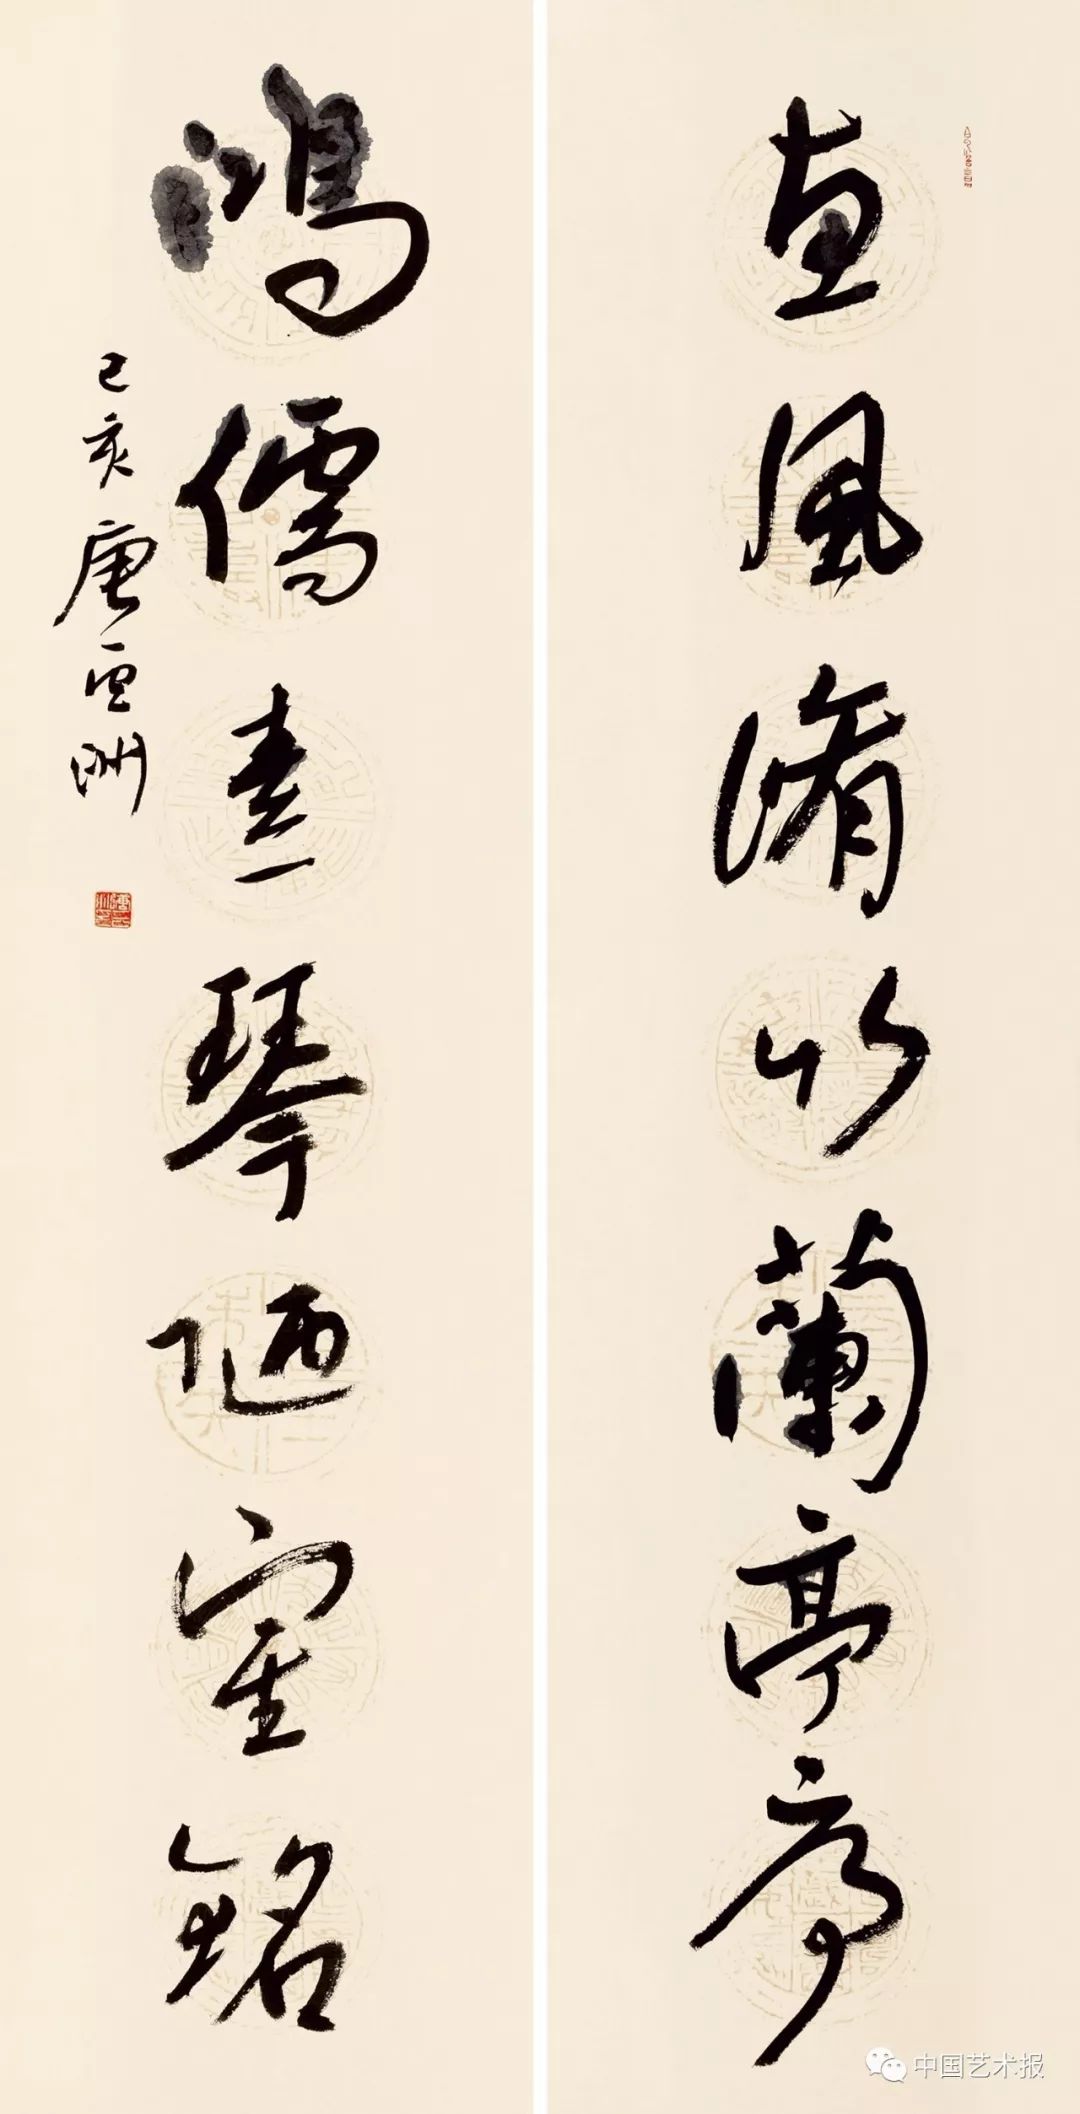 惠風脩竹蘭亭序
鴻儒素琴陋室銘
己亥唐洲
中国艺术报